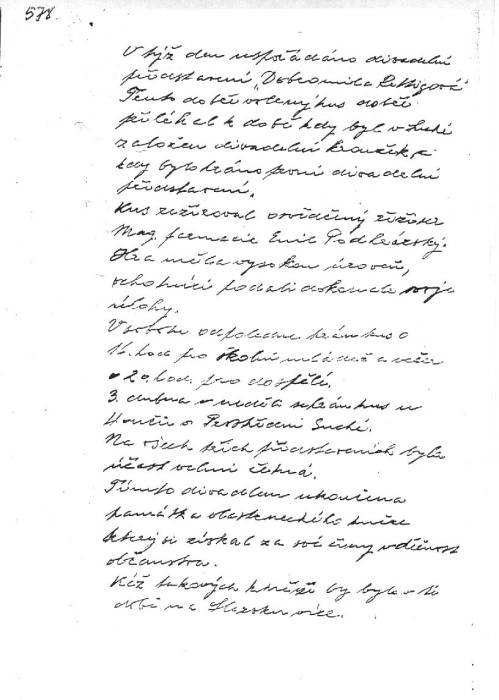 578
V týž den uspořádáno divadelní
představení „Dobromila Rettigová"
Tento dobře volený kus dobře
přiléhal k době kdy byl v Suché
založen divadelní kroužek, a
kdy bylo hráno první divadelní
představení.
Kus režíroval osvědčený režisér
Mag. farmacie Emil Podlezský.
Hra měla vysokou úroveň,
ochotníci podali dokonale svoje
úlohy.
V sobotu odpoledne hrán kus o
16. hod pro školní mládež a večer
o 20. hod. pro dospělé.
3. dubna v neděli sehrán kus u
v Prostřední Suché.
Na všech třech představeních byla
účast velmi četná.
Tímto divadlem ukončena
památka vlasteneckého kněze
který si získal za své činy vděčnost
občanstva.
Kéž takových kněží by bylo v té
době na Slezsku více.